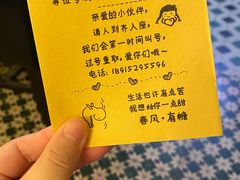 亲爱的小伙伴,
请人到齐入座,
我们会第一时间叫号,
过号重取,爱你们哦~
电话: 18915295596
生活也许有点苦
我想给你一点甜
春风·有糖